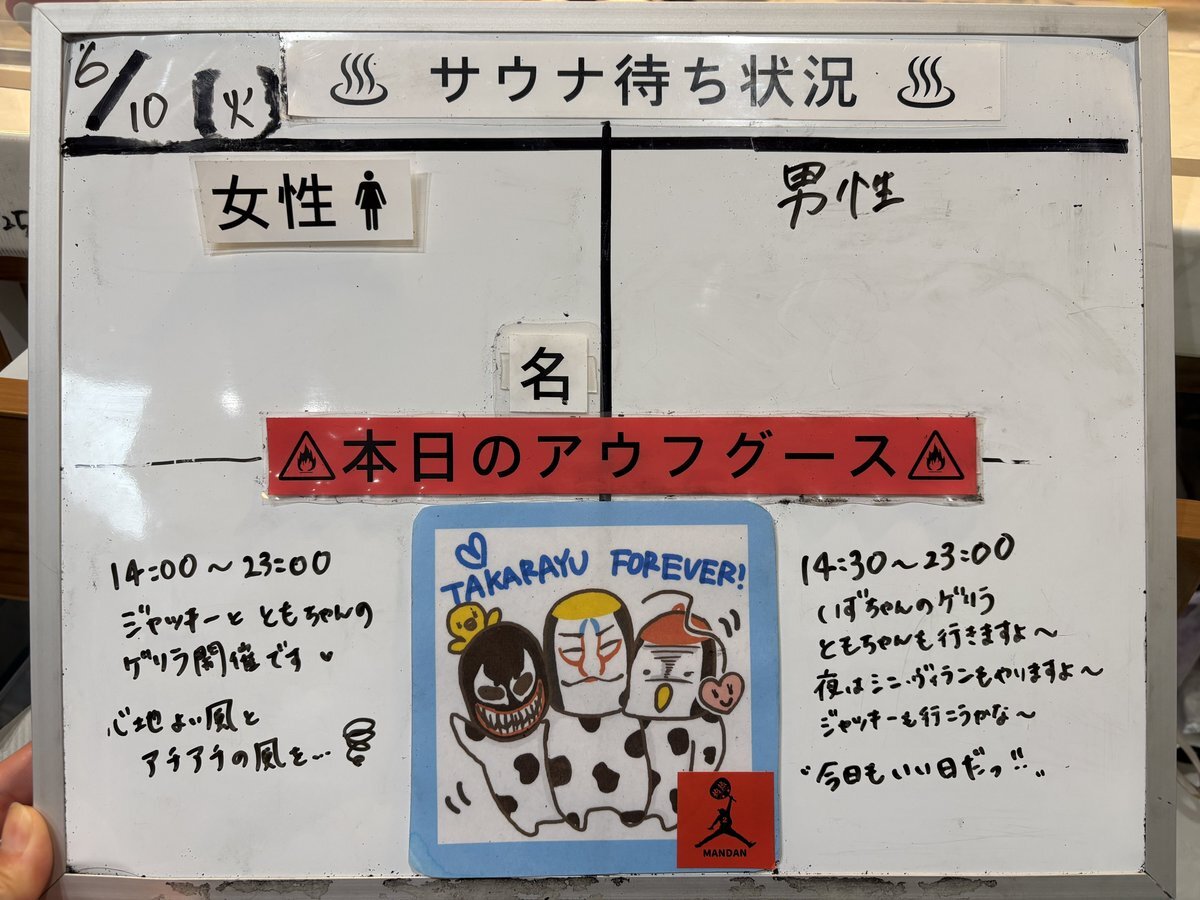 6/10 (火)
サウナ待ち状況
女性
男性
名
本日のアウフグース
14:00～23:00
ジャッキーと ともちゃんの
ゲリラ開催です
心地よい風と
アチアチの風を…
TAKARAYU FOREVER!
MANDAN
14:30～23:00
いずちゃんのゲリラ
ともちゃんも行きますよ～
夜はミニ・ヴィランもやりますよ～
ジャッキーも行こうかな～
"今日もいい日だっ!!"